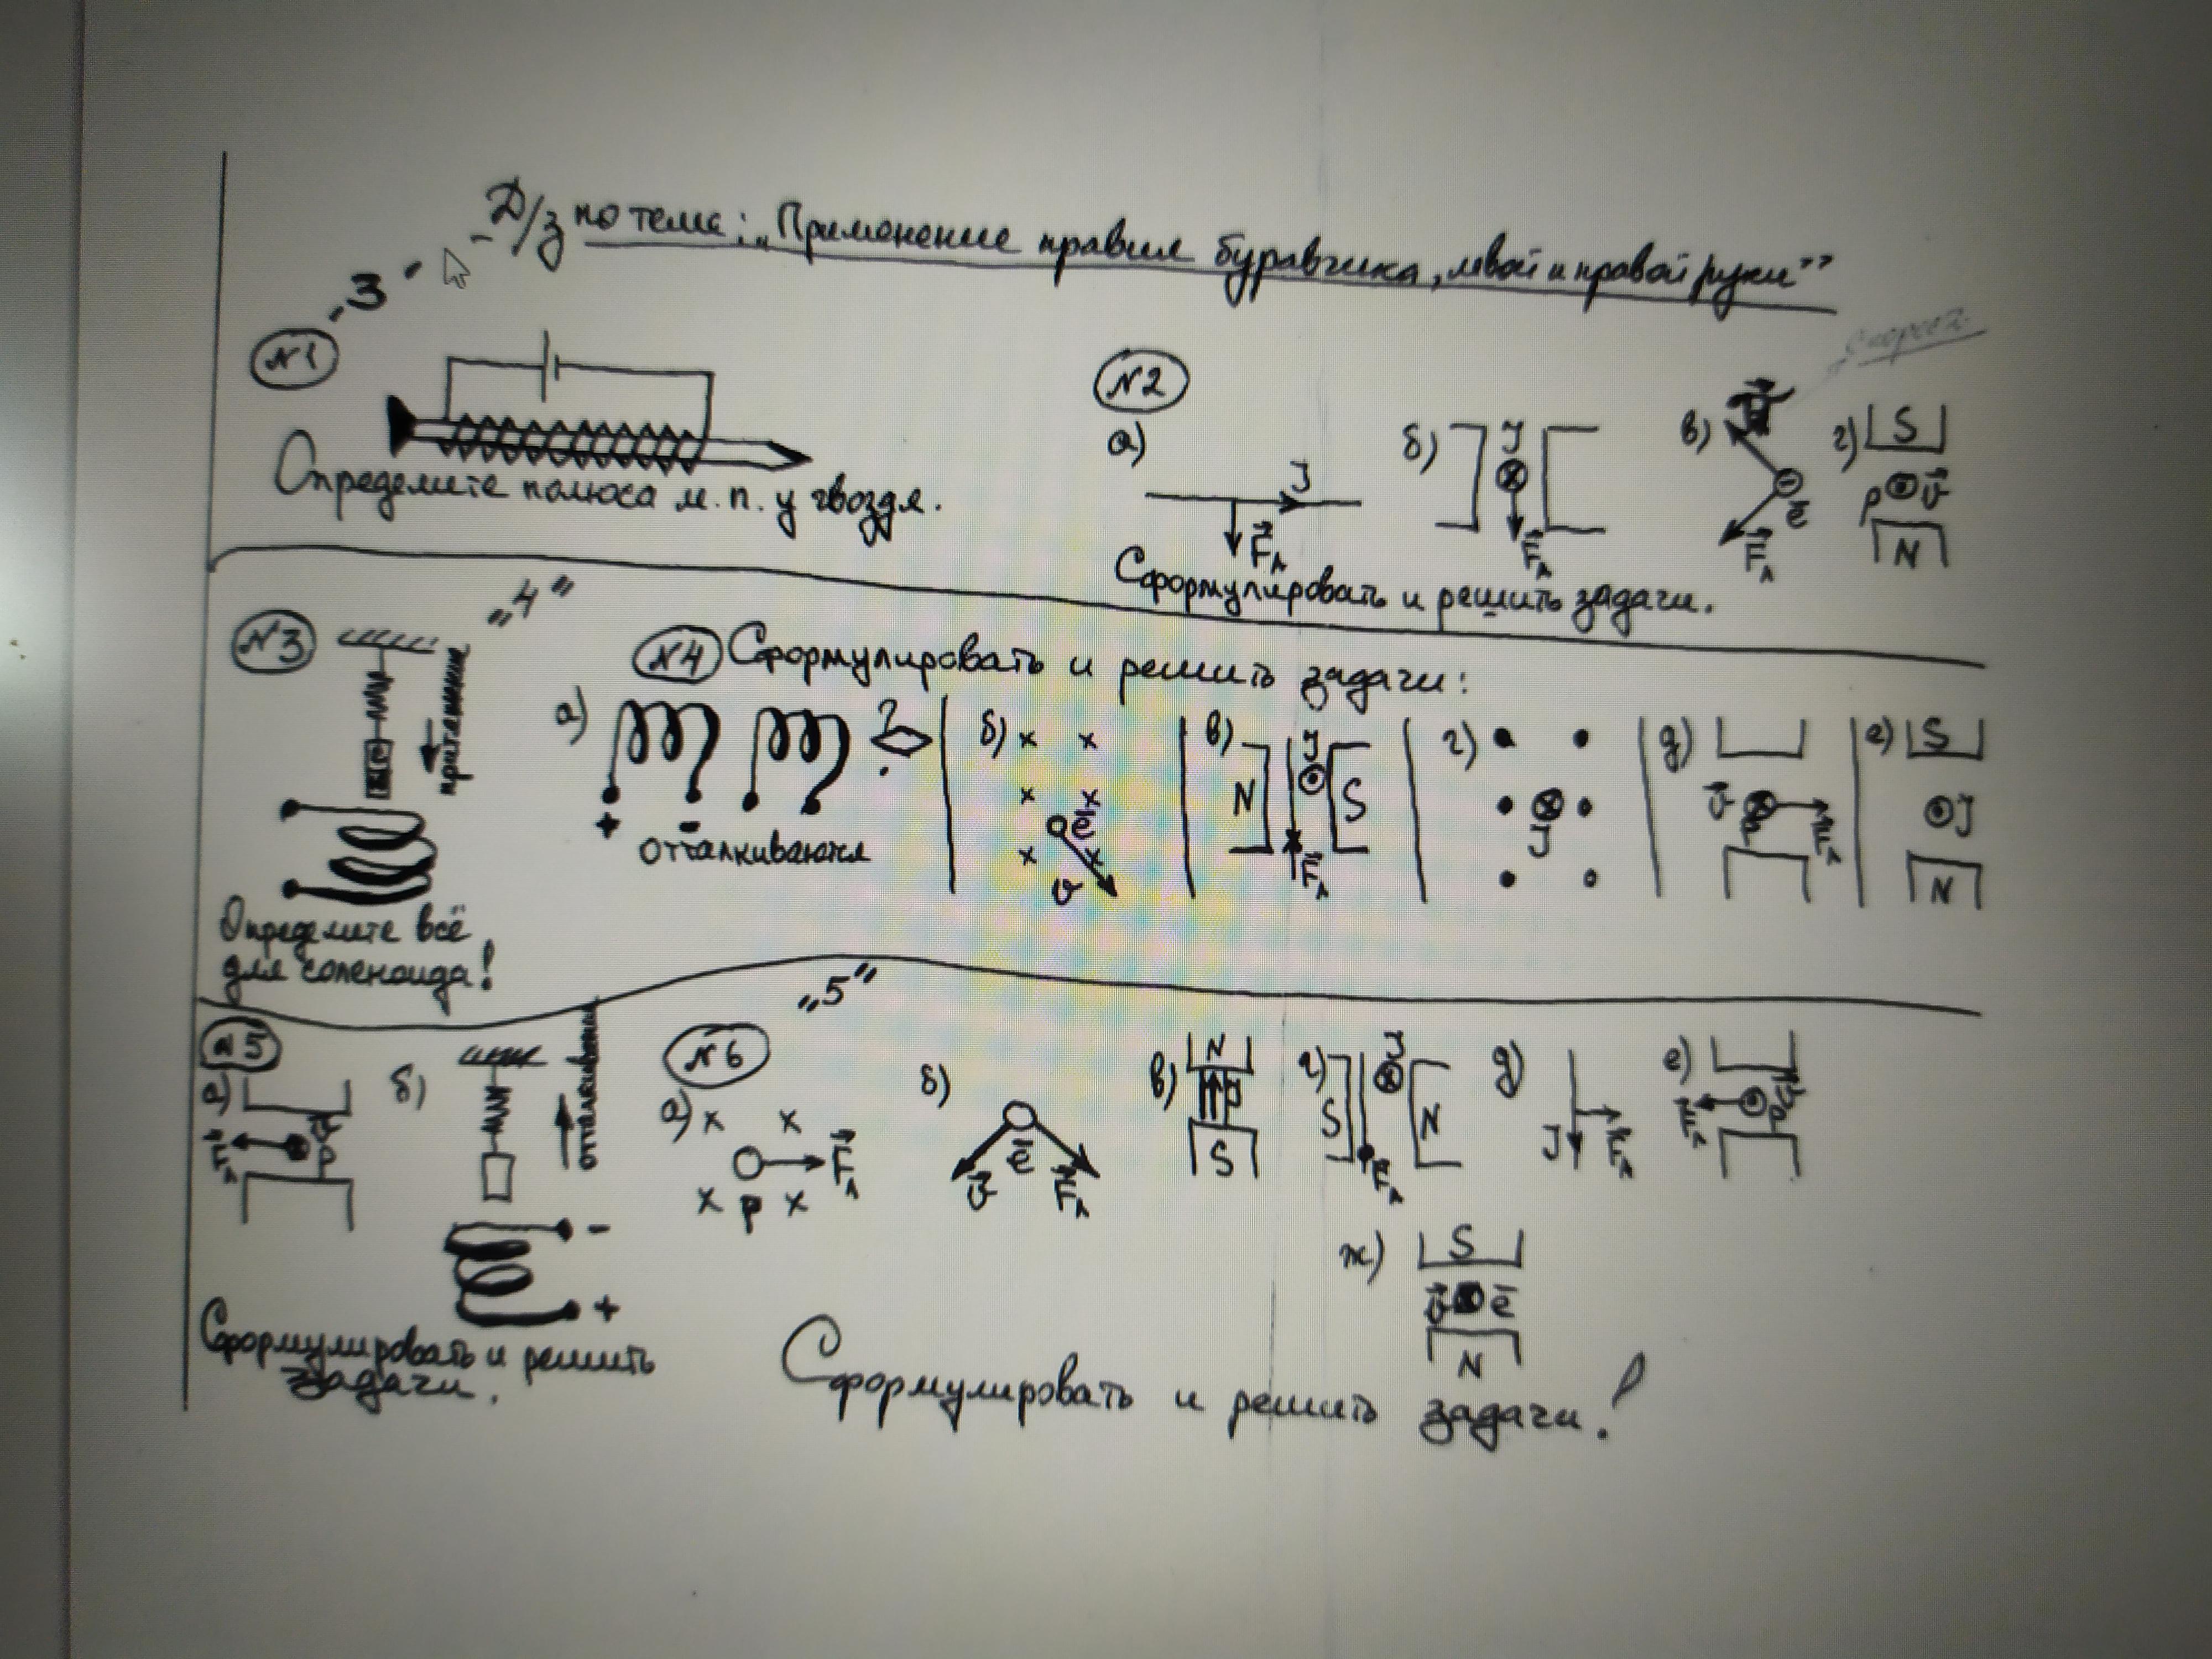 Д/з по теме: „Применение правил буравчика, левой и правой руки"
„3"
№1
Определите полюса м.п. у гвоздя.
№2
а) J F⃗А
б) J F⃗А
в) ē F⃗А
г) S p v⃗ N
Сформулировать и решить задачи.
„4"
№3
притягив.
Определите всё
для соленоида!
№4 Сформулировать и решить задачи:
а) ? + -
отталкиваются
б) ē v
в) N J S F⃗А
г) J
д) v⃗ F⃗А
е) S J N
„5"
№5
а) F⃗А p
б) отталкивание - +
Сформулировать и решить
задачи.
№6
а) p F⃗А
б) v⃗ ē F⃗А
в) N p S
г) S J N F⃗А
д) J F⃗А
е) F⃗А p
ж) S v⃗ ē N
Сформулировать и решить задачи!